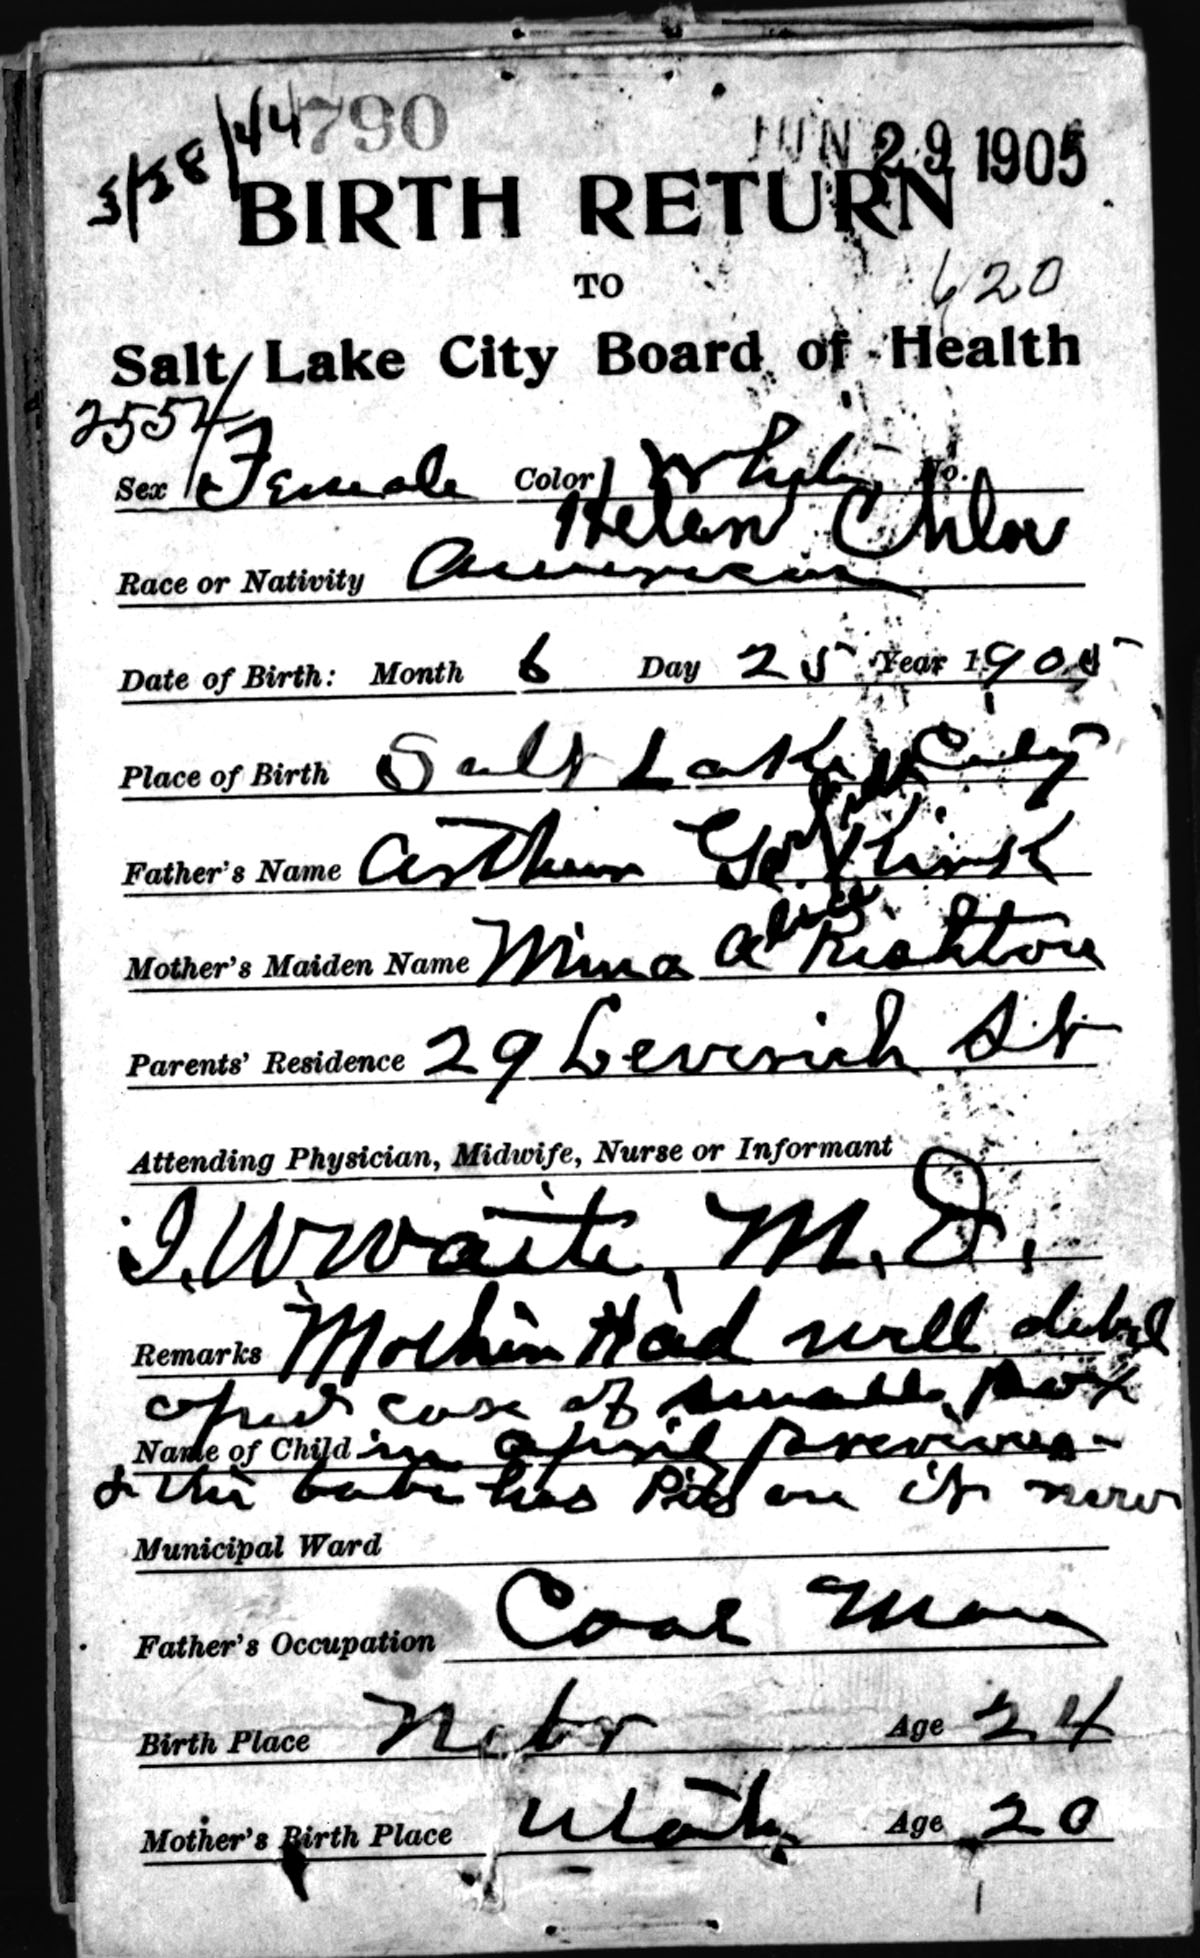 3/28/44 790 JUN 29 1905
BIRTH RETURN
TO
620
Salt Lake City Board of Health
2554
Sex Female Color White No.
Helen Chloe
Race or Nativity American
Date of Birth: Month 6 Day 25 Year 1905
Place of Birth Salt Lake City
Father's Name Arthur Kirk
Alice
Mother's Maiden Name Mina A Rishton
Parents' Residence 29 St
Attending Physician, Midwife, Nurse or Informant
I. W Waite, M. D.
Remarks Mother Had well
case of small pox
Name of Child in April previous -
& this babe has Pits on it now
Municipal Ward
Father's Occupation Coal Man
Birth Place Nebr Age 24
Mother's Birth Place Utah Age 20